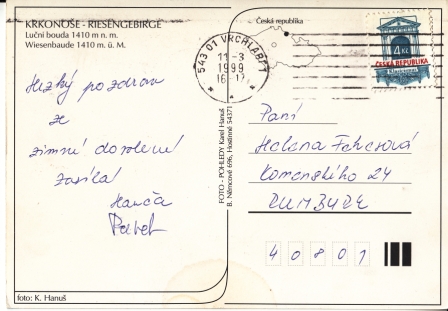 KRKONOŠE - RIESENGEBIRGE
Luční bouda 1410 m n. m.
Wiesenbaude 1410 m. ü. M.
Hezký pozdrav
ze
zimní dovolené
zasílá
Hanča
Pavel
foto: K. Hanuš
FOTO - POHLEDY Karel Hanuš
B. Němcové 696, Hostinné 54371
Česká republika
543 01 VRCHLABÍ 1
11-3
1999
16-17
4 Kč
ČESKÁ REPUBLIKA
Paní
Helena
Komenského 24
RUMBURK
40801